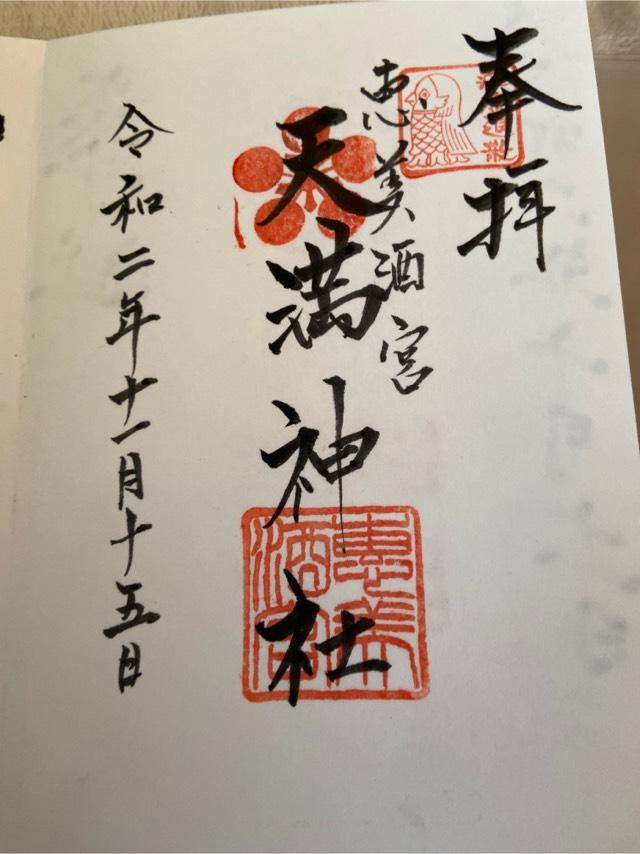 奉拝
恵美酒宮
天満神社
令和二年十一月十五日
惠美
酒宮